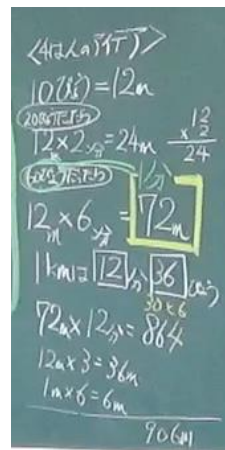 <4はんのアイデア>
10(びょう)=12m
20びょうだったら
12m×2=24m
12
×2
24
60びょうだったら
1分
12m×6=72m
1kmは12分36(びょう)
30×6
72m×12分=864
12m×3=36m
1m×6=6m
906m